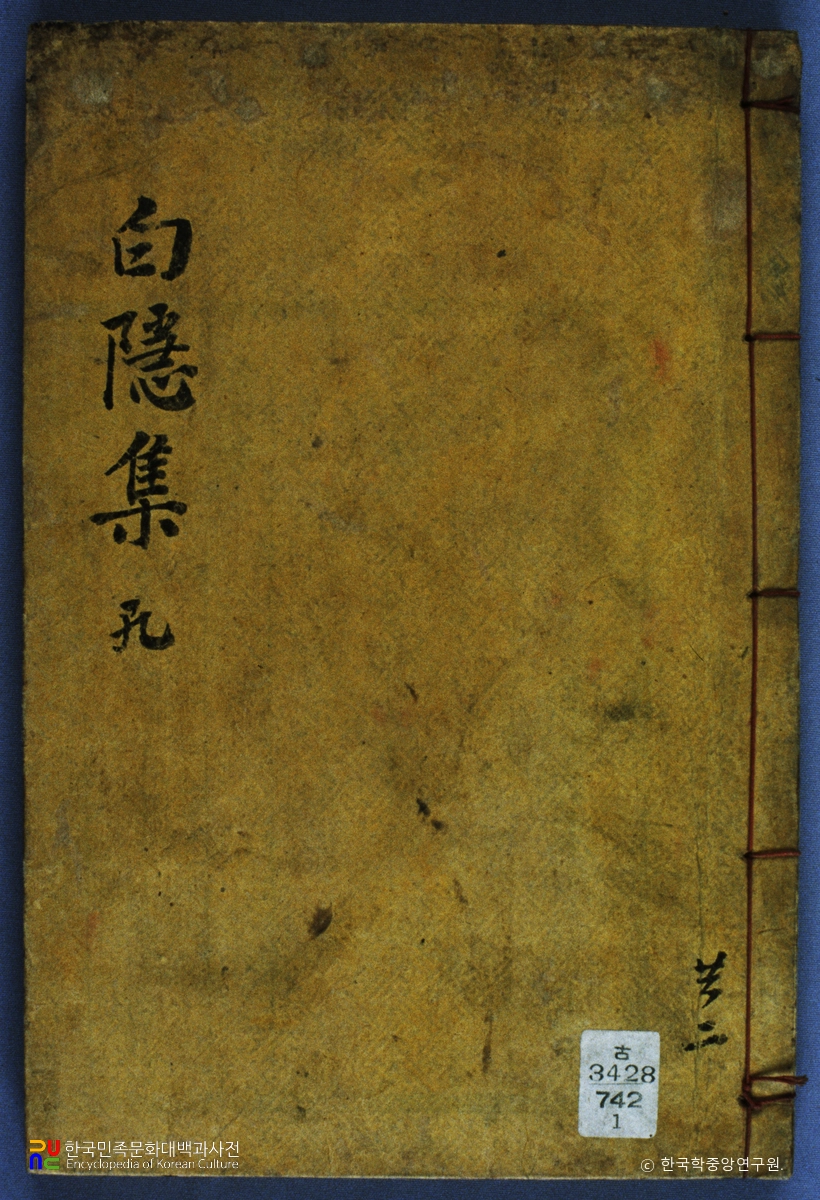 白隱集
共二
古
3428
742
1
한국민족문화대백과사전
Encyclopedia of Korean Culture
© 한국학중앙연구원